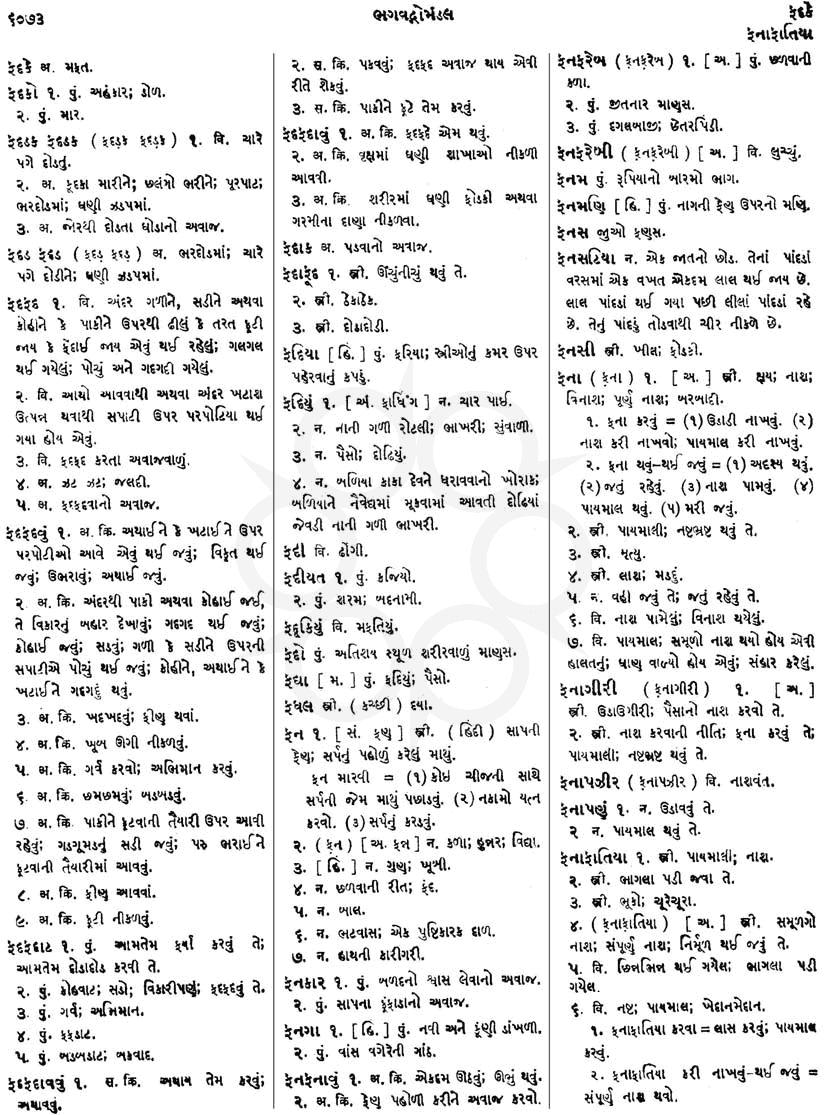 ૬૦૭૩
ભગવદ્ગોમંડલ
ફદકે
ફનાફાતિયા
ફદકે અ. મફત.
ફદકો ૧. પું. અહંકાર; ડોળ.
૨. પું. માર.
ફદડક ફદડક ( ફદડ઼ક ફદડ઼ક ) ૧. વિ. ચારે
પગે દોડતું.
૨. અ. કૂદકા મારીને; છલંગો ભરીને; પૂરપાટ;
ભરદોડમાં; ઘણી ઝડપમાં.
૩. અ. જોરથી દોડતા ઘોડાનો અવાજ.
ફદડ ફદડ ( ફદડ઼ ફદડ઼ ) અ. ભરદોડમાં; ચારે
પગે દોડીને; ઘણી ઝડપમાં.
ફદફદ ૧. વિ. અંદર ગળીને, સડીને અથવા
કોહીને કે પાકીને ઉપરથી ઢીલું કે તરત ફૂટી
જાય કે ફેંદાઈ જાય એવું થઈ રહેલું; ગલગલ
થઈ ગયેલું; પોચું અને ગદગદી ગયેલું.
૨. વિ. આથો આવવાથી અથવા અંદર ખટાશ
ઉત્પન્ન થવાથી સપાટી ઉપર પરપોટિયા થઈ
ગયા હોય એવું.
૩. વિ. ફદફદ કરતા અવાજવાળું.
૪. અ. ઝટ ઝટ; જલદી.
૫. અ. ફદફદવાનો અવાજ.
ફદફદવું ૧. અ. ક્રિ. અથાઈને કે ખટાઈને ઉપર
પરપોટીઓ આવે એવું થઈ જવું; વિકૃત થઈ
જવું; ઉભરાવું; અથાઈ જવું.
૨. અ. ક્રિ. અંદરથી પાકી અથવા કોહાઈ જઈ,
તે વિકારનું બહાર દેખાવું; ગદગદ થઈ જવું;
કોહાઈ જવું; સડવું; ગળી કે સડીને ઉપરની
સપાટીએ પોચું થઈ જવું; કોહીને, અથાઈને કે
ખટાઈને ગદગદું થવું.
૩. અ. ક્રિ. ખદખદવું; ફીણ થવાં.
૪. અ. ક્રિ. ખૂબ ઊગી નીકળવું.
૫. અ. ક્રિ. ગર્વ કરવો; અભિમાન કરવું.
૬. અ. ક્રિ. છમછમવું; બડબડવું.
૭. અ. ક્રિ. પાકીને ફૂટવાની તૈયારી ઉપર આવી
રહેવું; ગડગૂમડનું સડી જવું; પરુ ભરાઈને
ફૂટવાની તૈયારીમાં આવવું.
૮. અ. ક્રિ. ફીણ આવવાં.
૯. અ. ક્રિ. ફૂટી નીકળવું.
ફદફદાટ ૧. પું. આમતેમ ફર્યા કરવું તે;
આમતેમ દોડાદોડ કરવી તે.
૨. પું. કોહવાટ; સડો; વિકારીપણું; ફદફદવું તે.
૩. પું. ગર્વ; અભિમાન.
૪. પું. ફફડાટ.
૫. પું. બડબડાટ; બકવાદ.
ફદફદાવવું ૧. સ. ક્રિ. અથાય તેમ કરવું;
અથાવવું.
૨. સ. ક્રિ. પકવવું; ફદફદ અવાજ થાય એવી
રીતે શેકવું.
૩. સ. ક્રિ. પાકીને ફૂટે તેમ કરવું.
ફદફદાવું ૧. અ. ક્રિ. ફદફદે એમ થવું.
૨. અ. ક્રિ. વૃક્ષમાં ઘણી શાખાઓ નીકળી
આવવી.
૩. અ. ક્રિ. શરીરમાં ઘણી ફોડકી અથવા
ગરમીના દાણા નીકળવા.
ફદાક અ. પડવાનો અવાજ.
ફદાફૂદ ૧. સ્ત્રી. ઊંચુંનીચું થવું તે.
૨. સ્ત્રી. ઠેકાઠેક.
૩. સ્ત્રી. દોડાદોડી.
ફદિયા [ હિં. ] પું. ફરિયા; સ્ત્રીઓનું કમર ઉપર
પહેરવાનું કપડું.
ફદિયું ૧. [ અં. ફાર્ધિંગ ] ન. ચાર પાઈ.
૨. ન. નાની ગળી રોટલી; ભાખરી; સુંવાળી.
૩. ન. પૈસો; દોઢિયું.
૪. ન. બળિયા કાકા દેવને ધરાવવાનો ખોરાક;
બળિયાને નૈવેદ્યમાં મૂકવામાં આવતી દોઢિયાં
જેવડી નાની ગળી ભાખરી.
ફદી વિ. ઢોંગી.
ફદીયત ૧. પું. કજિયો.
૨. પું. શરમ; બદનામી.
ફદૂડિયું વિ. મફતિયું.
ફદો પું. અતિશય સ્થૂળ શરીરવાળું માણસ.
ફદ્યા [ મ. ] પું. ફદિયું; પૈસો.
ફધલ સ્ત્રી. ( કચ્છી ) દયા.
ફન ૧. [ સં. ફણ ] સ્ત્રી. ( હિંદી ) સાપની
ફેણ; સર્પનું પહોળું કરેલું માથું.
ફન મારવી = (૧) કોઇ ચીજની સાથે
સર્પની જેમ માથું પછાડવું. (૨) નકામો યત્ન
કરવો. (૩) સર્પનું કરડવું.
૨. ( ફ઼ન ) [ અ. ફન્ન ] ન. કળા; હુન્નર; વિદ્યા.
૩. [ હિં. ] ન. ગુણ; ખૂબી.
૪. ન. છળવાની રીત; ફંદ.
૫. ન. બાલ.
૬. ન. ભટવાસ; એક પુષ્ટિકારક દાળ.
૭. ન. હાથની કારીગરી.
ફનકાર ૧. પું. બળદનો શ્વાસ લેવાનો અવાજ.
૨. પું. સાપના ફૂંફાડાનો અવાજ.
ફનગા ૧. [ હિં. ] પું. નવી અને કૂંણી ડાંખળી.
૨. પું. વાંસ વગેરેની ગાંઠ.
ફનફનાવું ૧. અ. ક્રિ. એકદમ ઊઠવું; ઊભું થવું.
૨. અ. ક્રિ. ફેણ પહોળી કરીને અવાજ કરવો.
ફનફરેબ ( ફ઼નફ઼રેબ ) ૧. [ અ. ] પું. છળવાની
કળા.
૨. પું. જીતનાર માણસ.
૩. પું. દગલબાજી; છેતરપિંડી.
ફનફરેબી ( ફ઼નફ઼રેબી ) [ અ. ] વિ. લુચ્ચું.
ફનમ પું. રૂપિયાનો બારમો ભાગ.
ફનમણિ [ હિં. ] પું. નાગની ફેણ ઉપરનો મણિ.
ફનસ જુઓ ફણસ.
ફનસટિયા ન. એક જાતનો છોડ. તેનાં પાંદડાં
વરસમાં એક વખત એકદમ લાલ થઈ જાય છે.
લાલ પાંદડાં થઈ ગયા પછી લીલાં પાંદડાં રહે
છે. તેનું પાંદડું તોડવાથી ચીર નીકળે છે.
ફનસી સ્ત્રી. ખીલ; ફોડકી.
ફના ( ફ઼ના ) ૧. [ અ. ] સ્ત્રી. ક્ષય; નાશ;
વિનાશ; પૂર્ણ નાશ; બરબાદી.
૧. ફના કરવું = (૧) ઉડાડી નાખવું. (૨)
નાશ કરી નાખવો; પાયમાલ કરી નાખવું.
૨. ફના થવું–થઈ જવું = (૧) અદૃશ્ય થવું.
(૨) જતું રહેવું. (૩) નાશ પામવું. (૪)
પાયમાલ થવું. (૫) મરી જવું.
૨. સ્ત્રી. પાયમાલી; નષ્ટભ્રષ્ટ થવું તે.
૩. સ્ત્રી. મૃત્યુ.
૪. સ્ત્રી. લાશ; મડદું.
૫. ન. વહી જવું તે; જતું રહેવું તે.
૬. વિ. નાશ પામેલું; વિનાશ થયેલું.
૭. વિ. પાયમાલ; સમૂળો નાશ થયો હોય એવી
હાલતનું; ઘાણ વાળ્યો હોય એવું; સંહાર કરેલું.
ફનાગીરી ( ફ઼નાગીરી ) ૧. [ અ. ]
સ્ત્રી. ઉડાઉગીરી; પૈસાનો નાશ કરવો તે.
૨. સ્ત્રી. નાશ કરવાની નીતિ; ફના કરવું તે;
પાયમાલી; નષ્ટભ્રષ્ટ થવું તે.
ફનાપઝીર ( ફ઼નાપઝીર ) વિ. નાશવંત.
ફનાપણું ૧. ન. ઉડાવવું તે.
૨ ન. પાયમાલ થવું તે.
ફનાફાતિયા ૧. સ્ત્રી. પાયમાલી; નાશ.
૨. સ્ત્રી. ભાગલા પડી જવા તે.
૩. સ્ત્રી. ભૂકો; ચૂરેચૂરા.
૪. ( ફ઼નાફ઼ાતિયા ) [ અ. ] સ્ત્રી. સમૂળગો
નાશ; સંપૂર્ણ નાશ; નિર્મૂળ થઈ જવું તે.
૫. વિ. છિન્નભિન્ન થઈ ગયેલ; ભાગલા પડી
ગયેલ.
૬. વિ. નષ્ટ; પાયમાલ; ખેદાનમેદાન.
૧. ફનાફાતિયા કરવા = લાસ કરવું; પાયમાલ
કરવું.
૨. ફનાફાતિયા કરી નાખવું-થઈ જવું =
સંપૂર્ણ નાશ થવો.